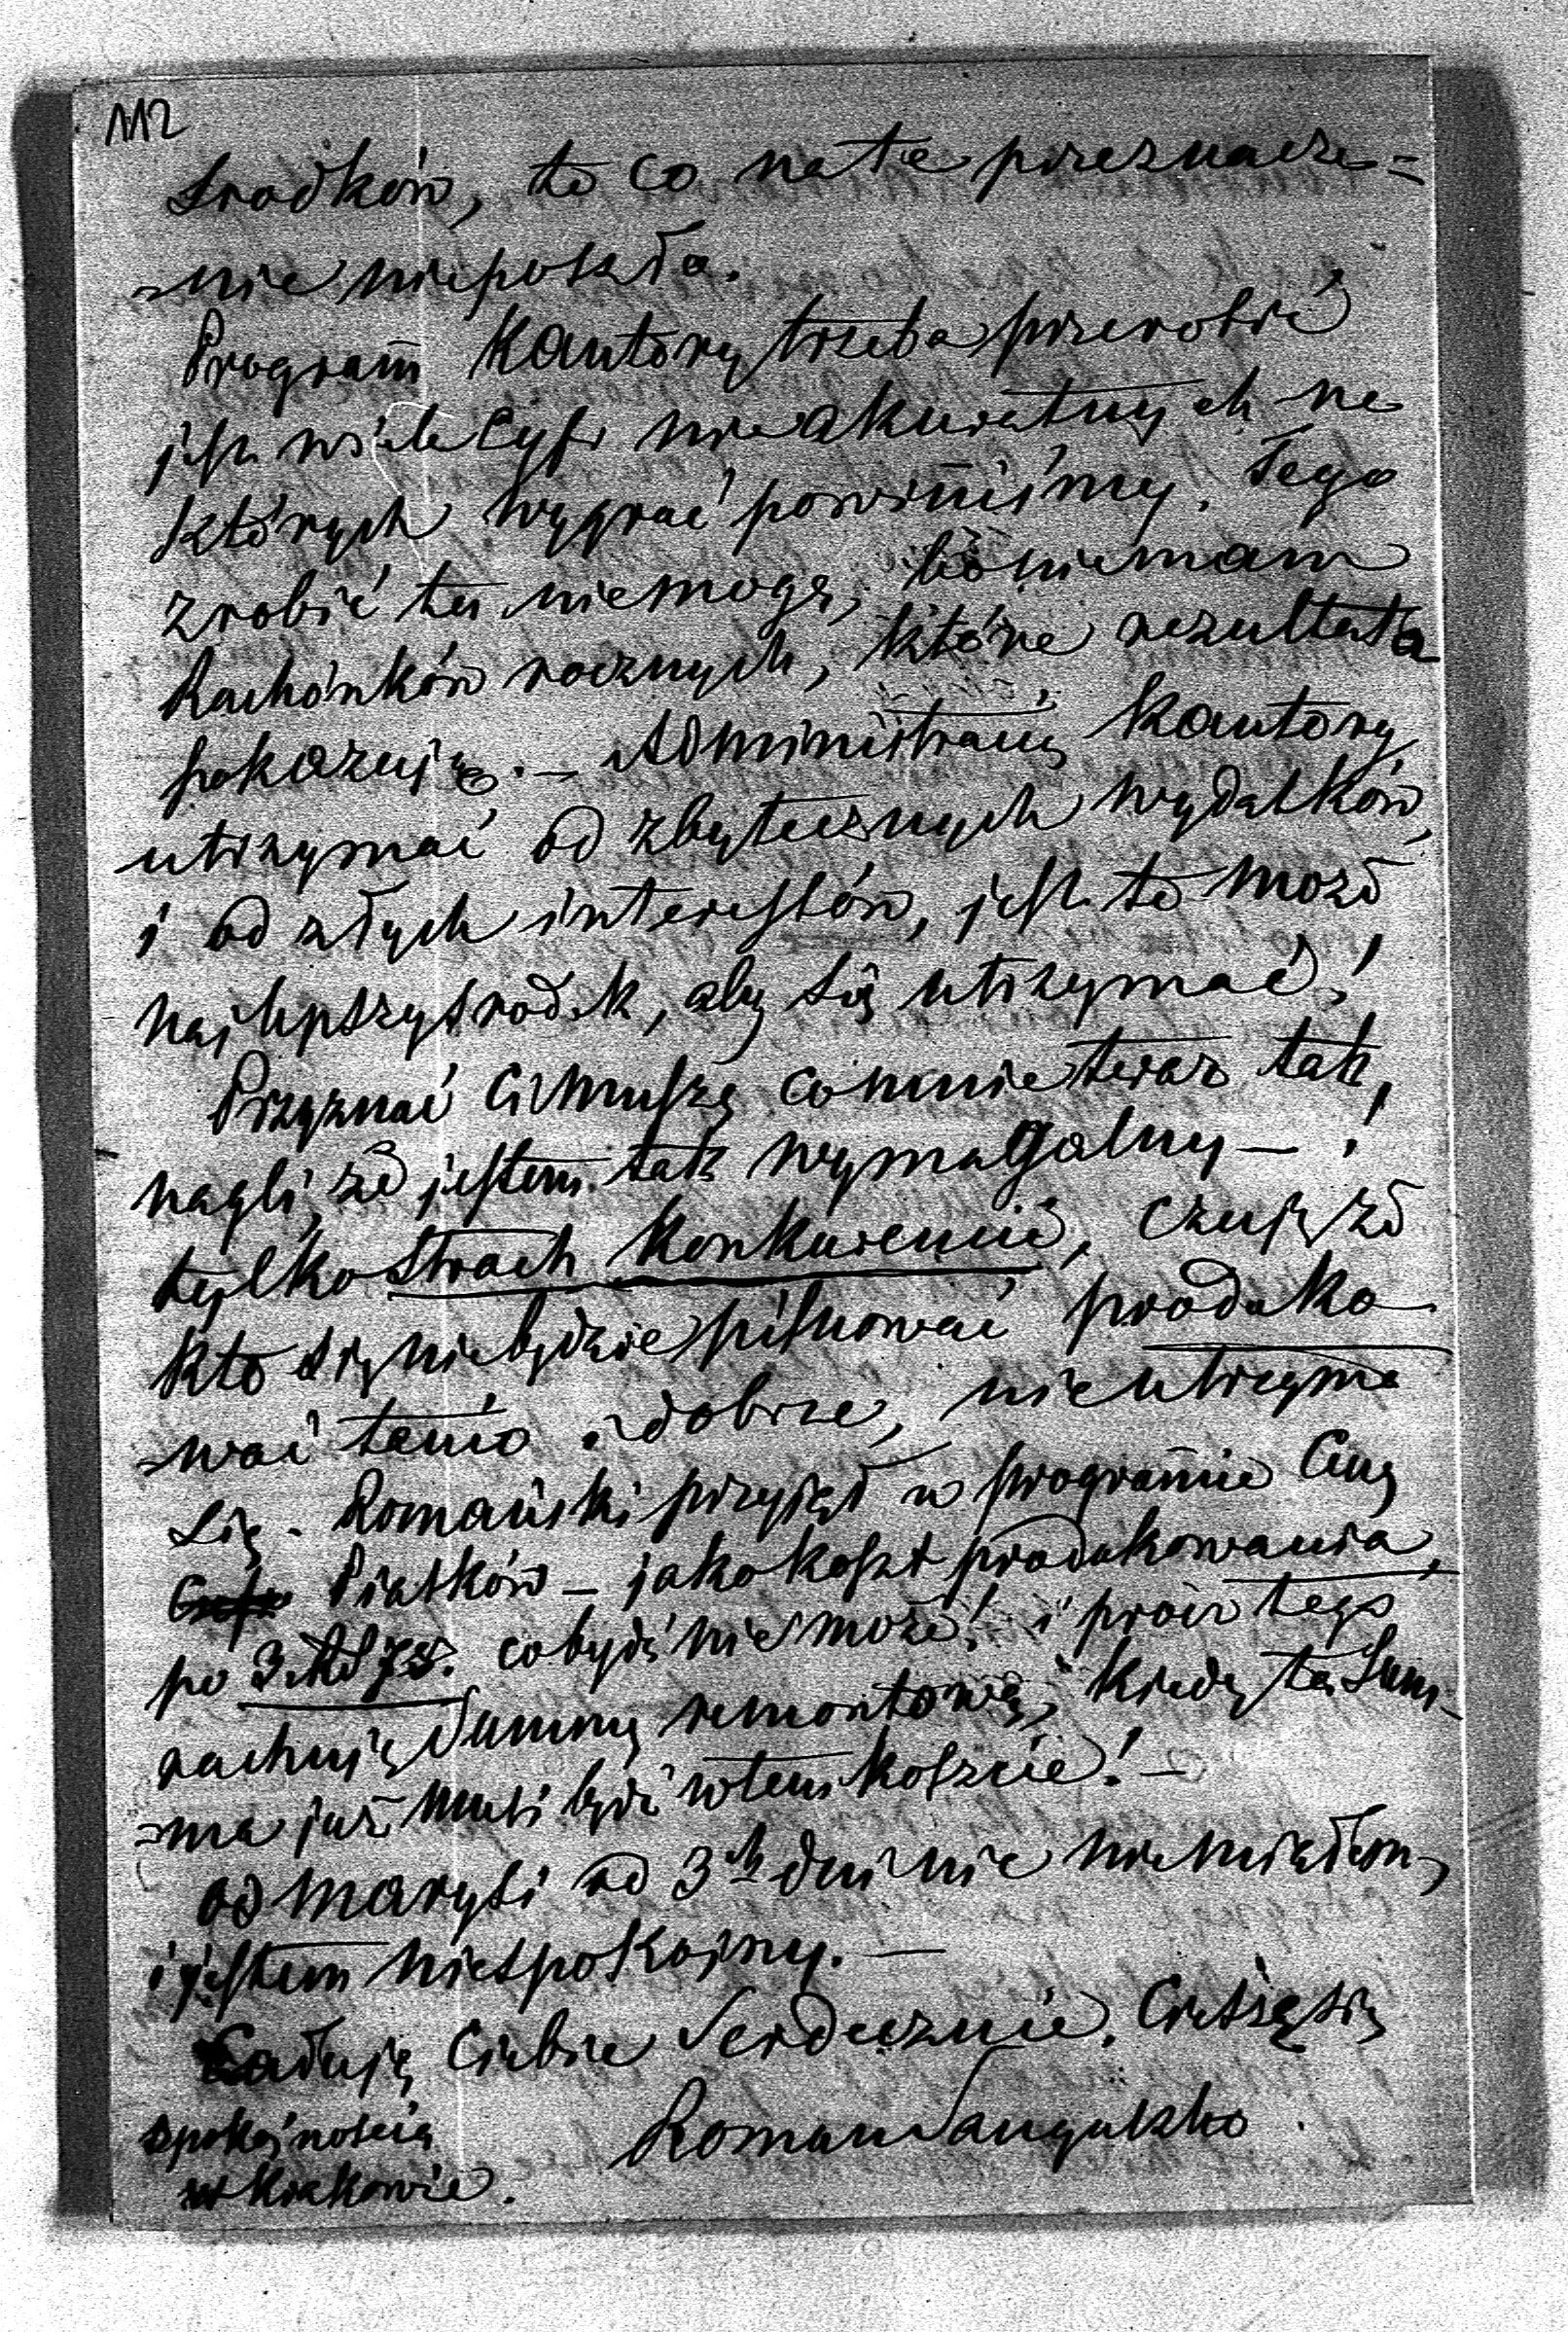 112
srodków, to co na te przeznacze=
=nie niepotszło.
Program Kantory trzeba przerobić
jest wiele cyfr nieakuratnych na
których wygrać powinniśmy. Tego
zrobić tu niemogę, bo niemam
Rachónków rocznych, które rezultata
pokazują. — Administracię Kantory
utrzymać od zbytecznych wydatków,
i od złych interessów, jest to może
najlepszy srodek, aby się utrzymać!
Przyznać Ci muszę co mnie teraz tak
nagli, że jestem tak wymagalny — !
tylko strach Konkurencii, czuję że
kto się niebędzie pilnować produko-
=wać tanio i dobrze, nieutrzyma
się. Romański przyjął w programie Cenę
Piatków — jako koszt produkowania,
po 3 Rb 75. co być nie może! i prócz tego
rachuję Summę remontową, kiedy ta Sum-
=ma już musi być wtem koszcie! —
od Marysi od 3ch dni nic niemiałem,
i jestem niespokojny. —
Całuję Ciebie Serdecznie. Cieszę się
spokojnością
w Krakowie.
Roman Sanguszko